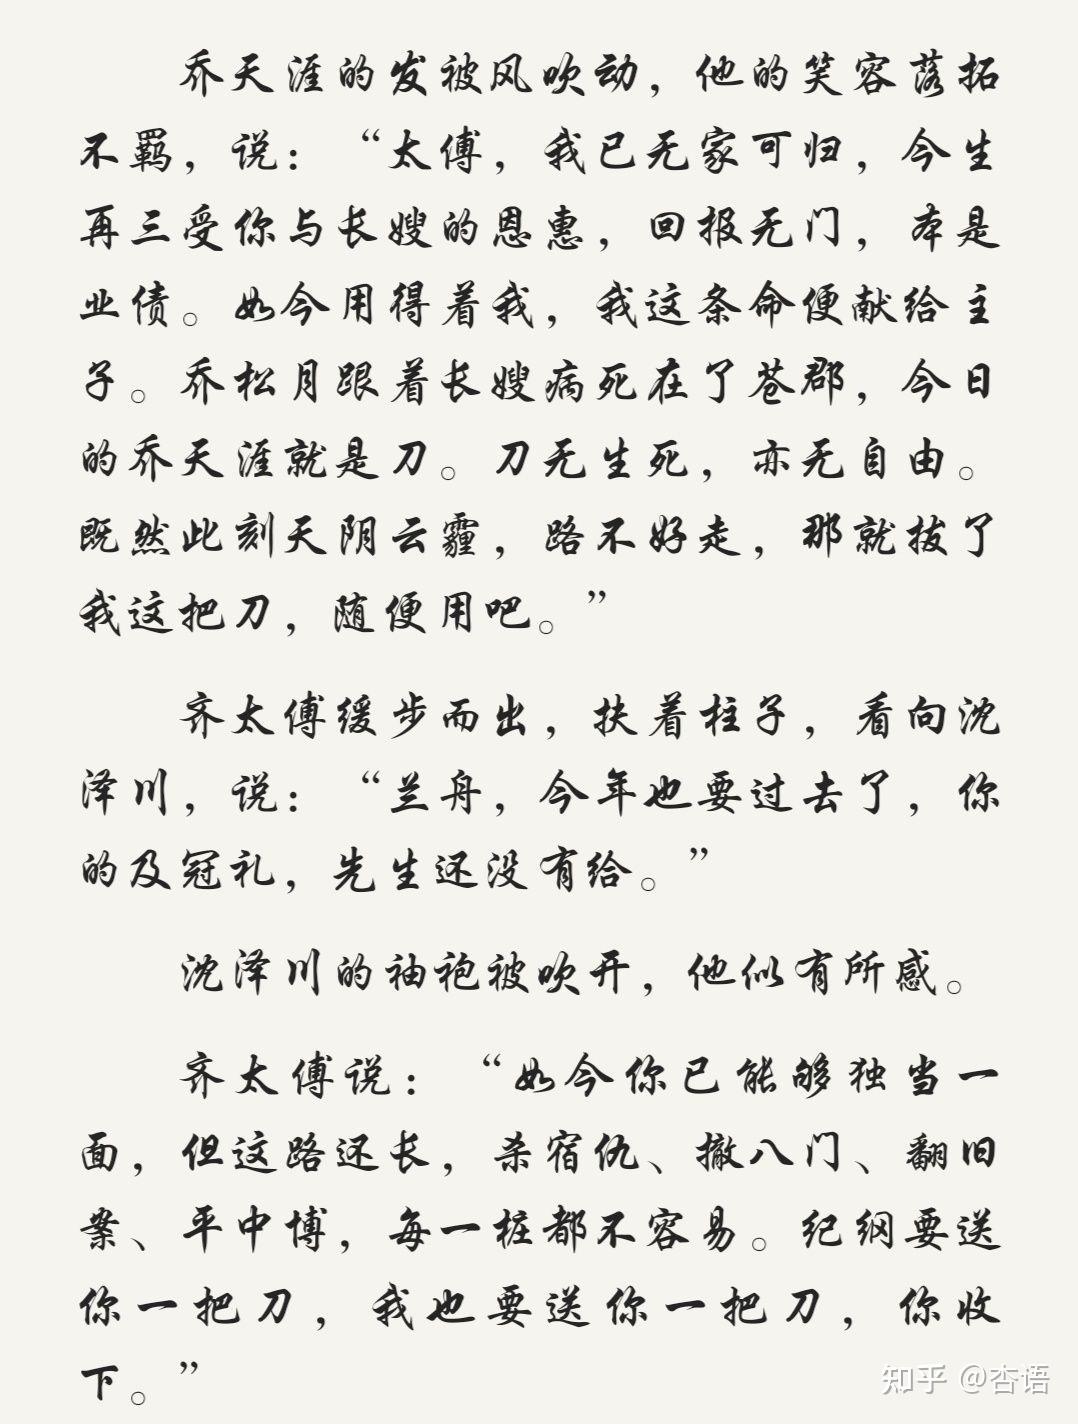 乔天涯的发被风吹动，他的笑容落拓
不羁，说：“太傅，我已无家可归，今生
再三受你与长嫂的恩惠，回报无门，本是
业债。如今用得着我，我这条命便献给主
子。乔松月跟着长嫂病死在了苍郡，今日
的乔天涯就是刀。刀无生死，亦无自由。
既然此刻天阴云霾，路不好走，那就拔了
我这把刀，随便用吧。”
齐太傅缓步而出，扶着柱子，看向沈
泽川，说：“兰舟，今年也要过去了，你
的及冠礼，先生还没有给。”
沈泽川的袖袍被吹开，他似有所感。
齐太傅说：“如今你已能够独当一
面，但这路还长，杀宿仇、撤八门、翻旧
案、平中博，每一桩都不容易。纪纲要送
你一把刀，我也要送你一把刀，你收
下。”
知乎 @杏语